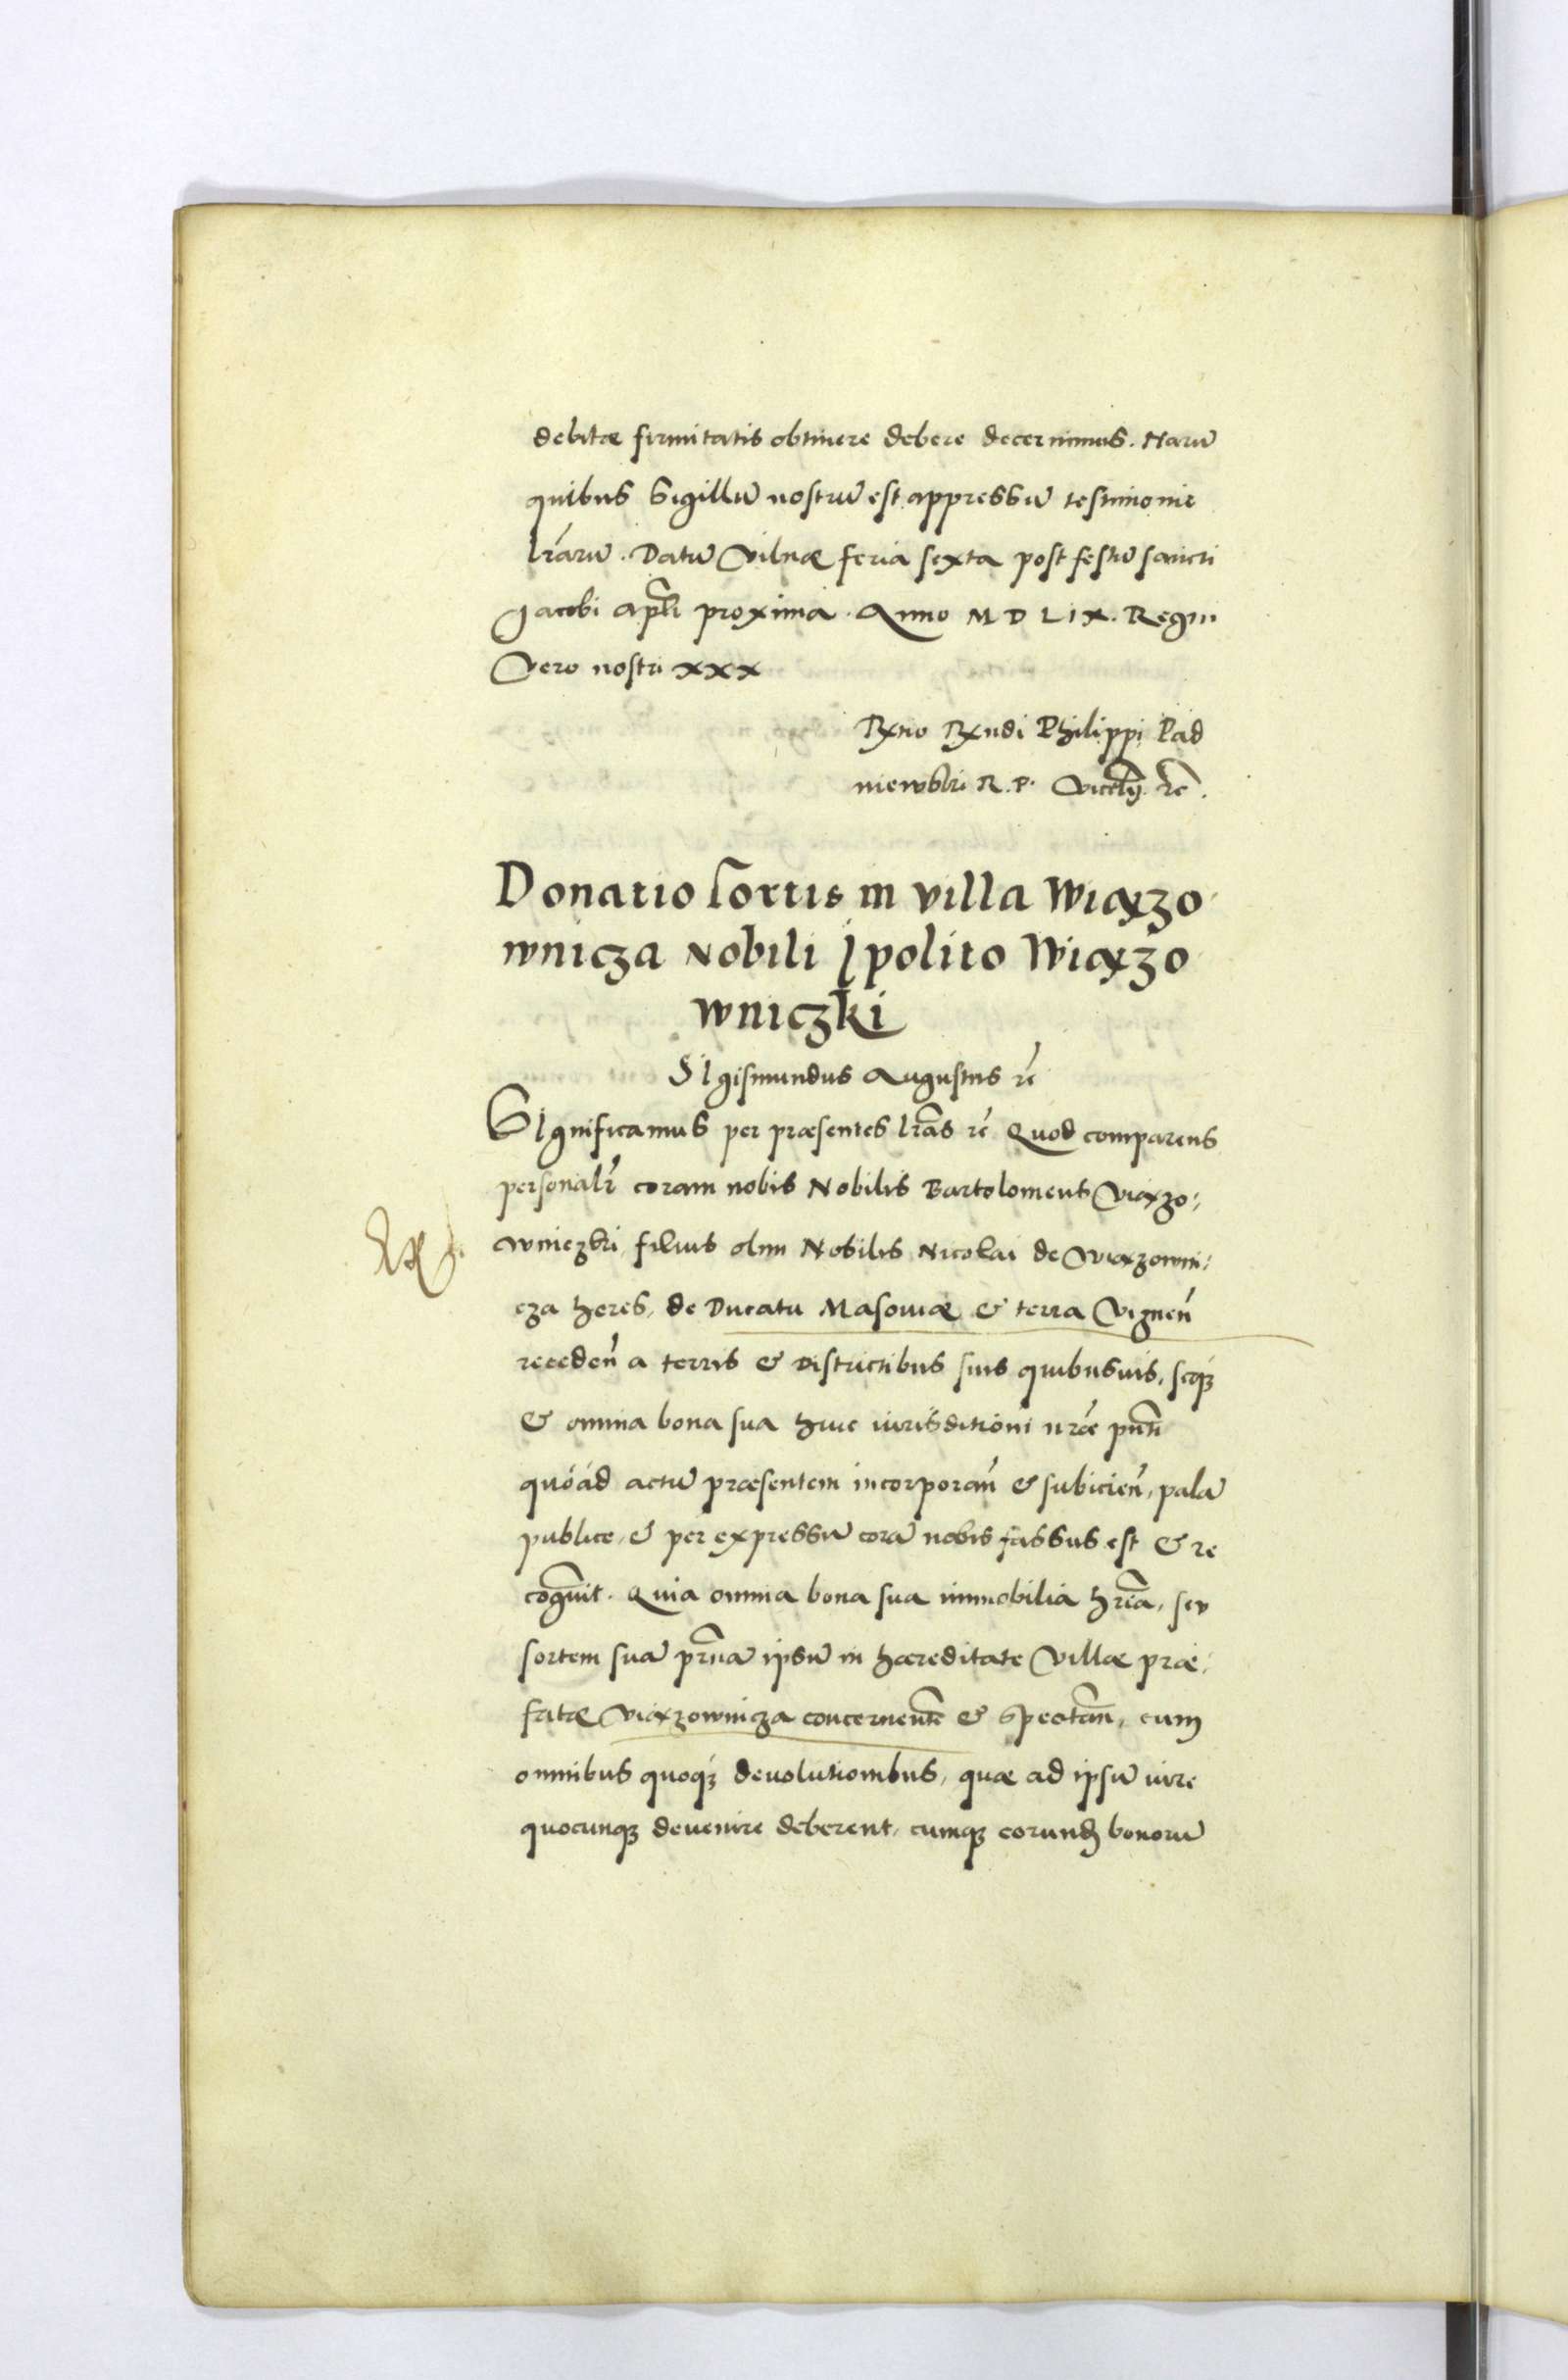 debitæ firmitatis obtinere debere decernimus. Harũ
quibus Sigillũ nostrũ est appressũ testimonio
lr̃arũ. Datũ Vilnæ feria sexta post festũ sancti
Jacobi apl̃i proxima. Anno M D L I X. Regni
Vero nostri xxx
Philippi Pad
niewski R. P. Vicecñ. rc̃.
Donatio sortis in villa Wiązo
wnicza Nobili Ipolito Wiązo
wniczki
SIgismundus Augustus rc̃
SIgnificamus per præsentes lr̃as rc̃ Quod comparens
personalr̃ coram nobis Nobilis Bartolomeus Viązo:
wniczki filius olim Nobilis Nicolai de Viązowni:
cza heres, de Ducatu Masoviæ & terra Viznen̄
receden̄ a terris & districtibus suis quibusvis, seq3
& omnia bona sua huic iurisditioni nr̃æ pñti
quóad actũ præsentem incorporan̄ & subicien̄, palã
publice, & per expressũ corã nobis fassus est & re
cogñvit. Quia omnia bona sua immobilia hr̃ia, seu
sortem suã pr̃nã ipsũ in hæreditate Villæ præ:
fatæ Viązownicza concernentẽ & spectan̄, cum
omnibus quoq3 devolutionibus, quæ ad ipsũ iure
quocunq3 devenire deberent, cumq3 eorund bonorũ